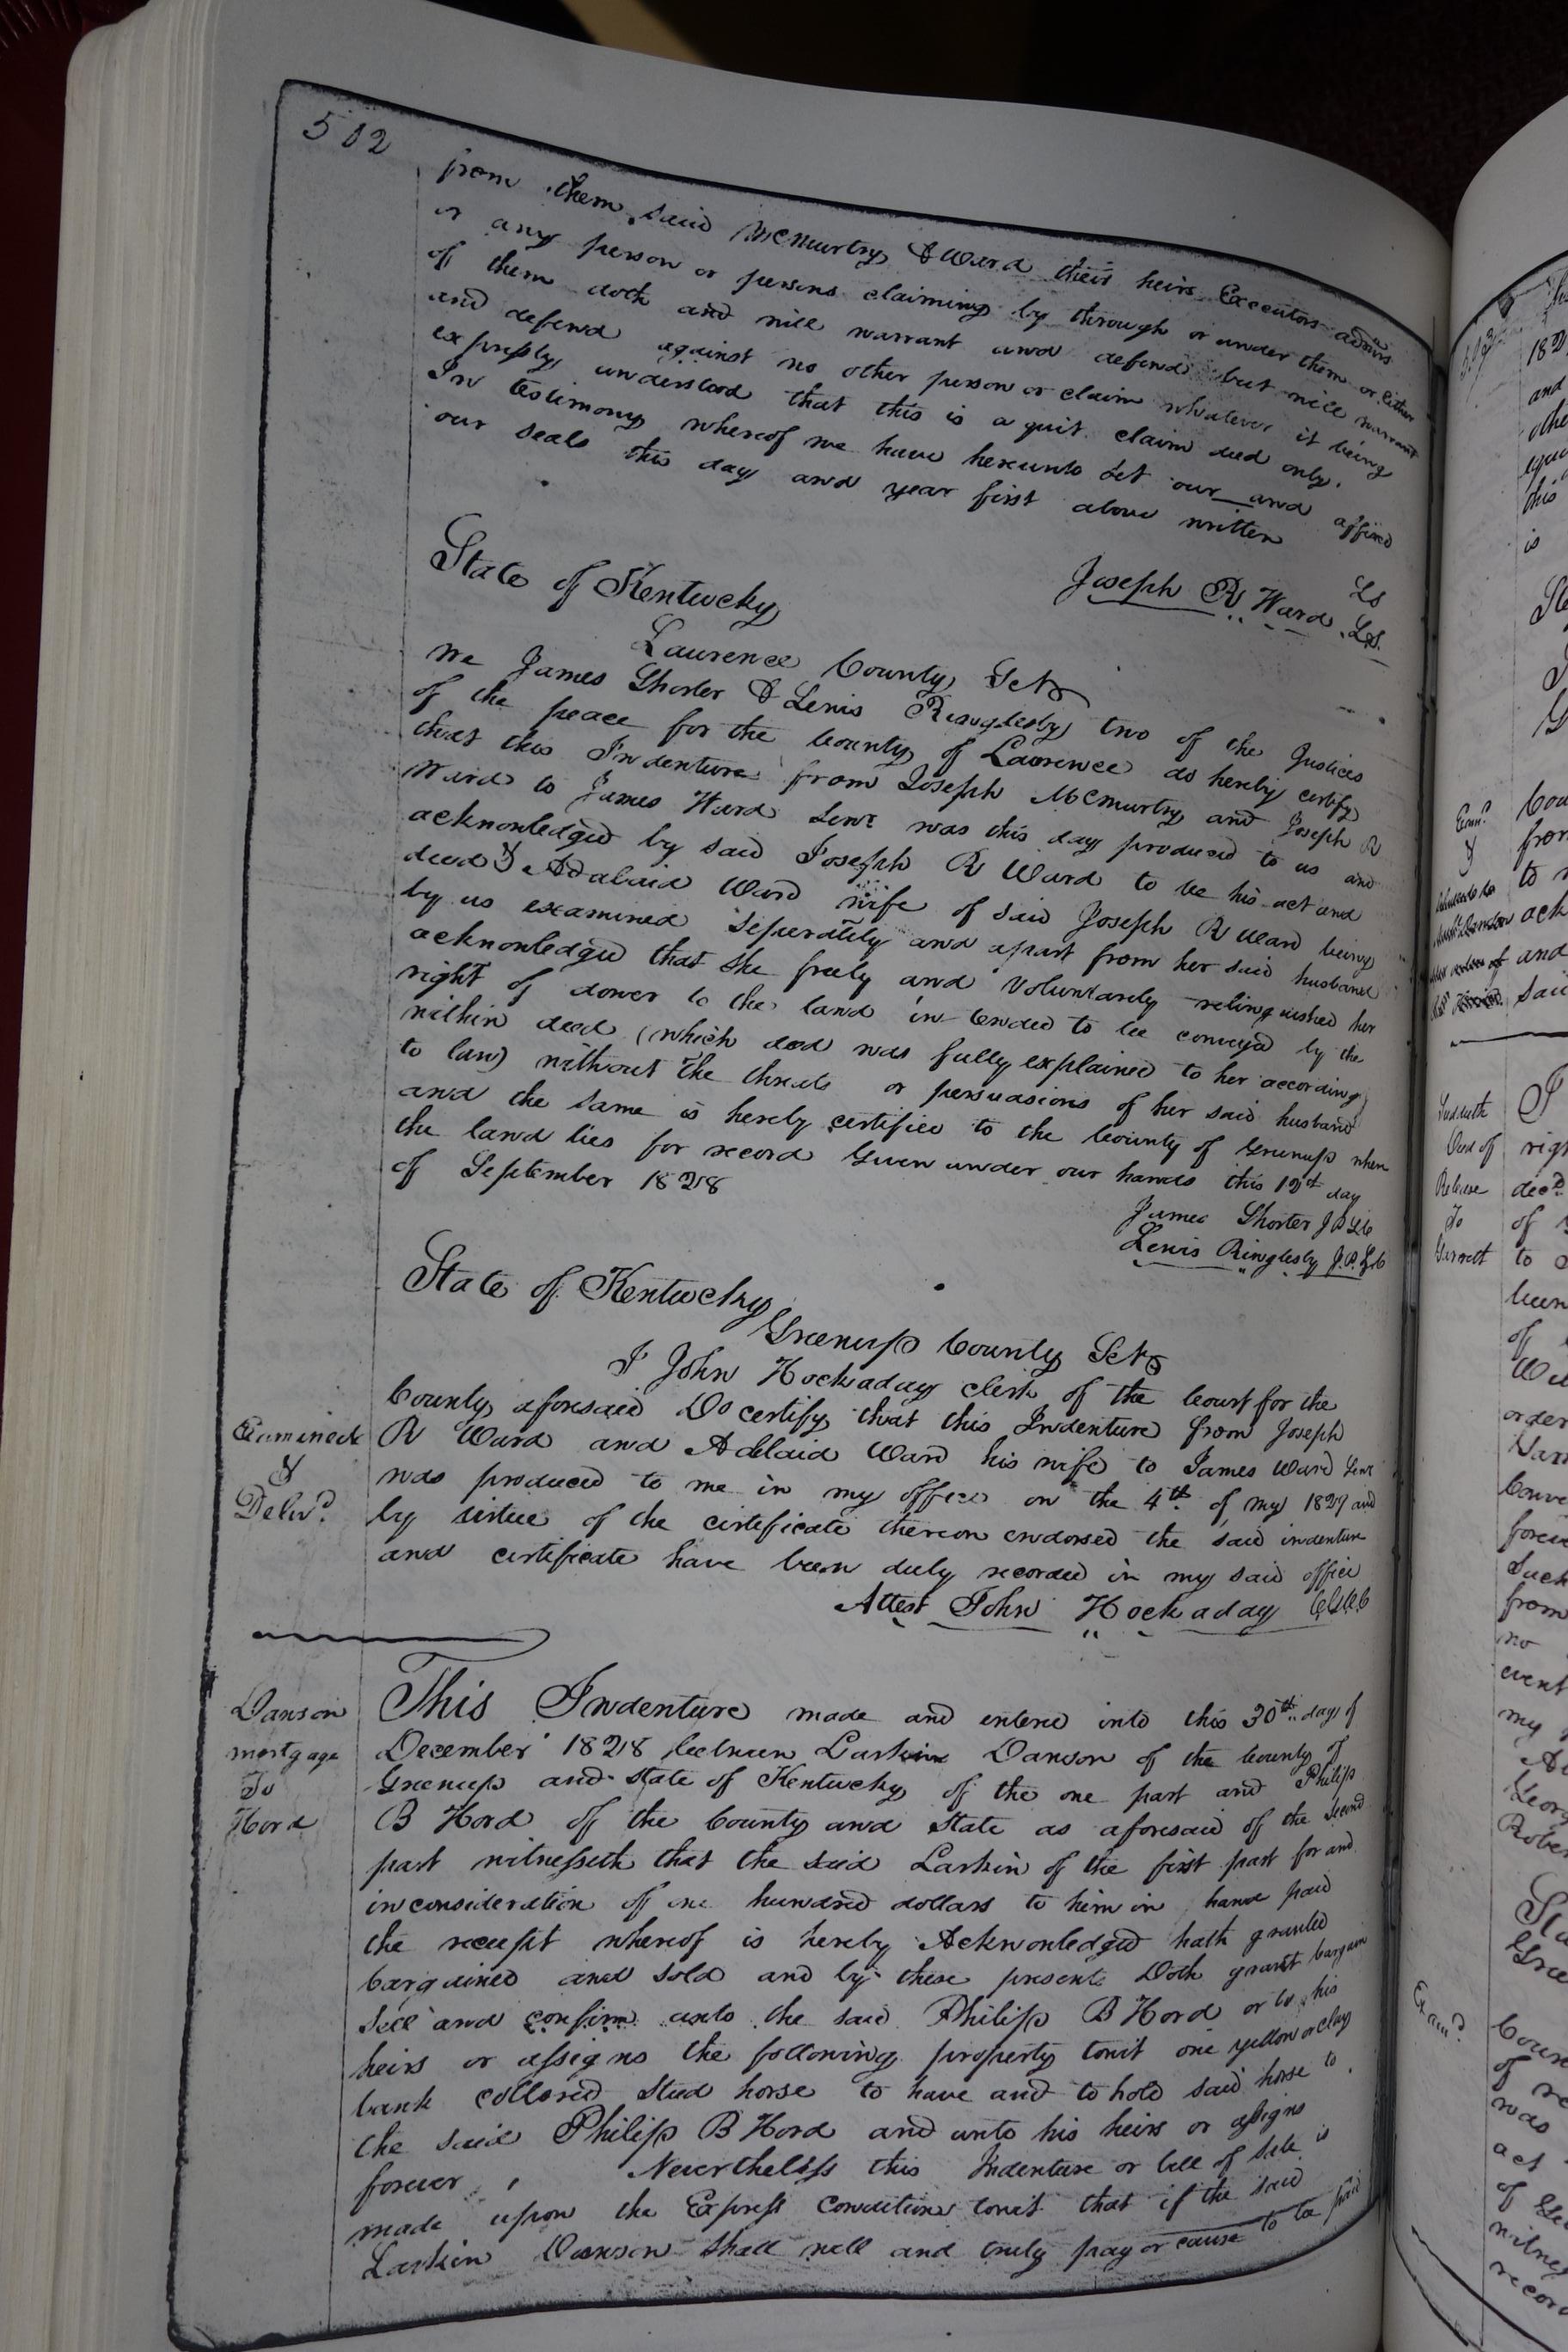 502
from them said McMurtry & Ward their heirs Executors admrs
or any person or persons claiming by through or under them or either
of them doth and will warrant and defend but will warrant
and defend against no other person or claim whatever it being
expressly understood that this is a quit claim deed only.
In testimony whereof we have hereunto set our and affixed
our seals this day and year first above written
Ls
Joseph R Ward Ls.
State of Kentucky
Laurence County Sct
We James Shorter & Lewis Ringlesby two of the Justices
of the peace for the County of Laurence do hereby certify
that this Indenture from Joseph McMurtry and Joseph R
Ward to James Ward Senr was this day produced to us and
acknowledged by said Joseph R Ward to be his act and
deed & Adalaid Ward wife of said Joseph R Ward being
by us examined seperately and apart from her said husband
acknowledged that she freely and voluntarily relinquished her
right of dower to the land intended to be conveyed by the
within deed (which deed was fully explained to her according
to law) without the threats or persuasions of her said husband
and the same is hereby certified to the County of Greenup when
the land lies for record Given under our hands this 12th day
of September 1828
James Shorter J P L C
Lewis Ringlesby J.P. L C
State of Kentucky
Greenup County Sct
I John Hockaday clerk of the Court for the
County aforesaid Do certify that this Indenture from Joseph
Examined R Ward and Adelaid Ward his wife to James Ward Senr
& was produced to me in my office on the 4th of my 1829 and
Delivd. by virtue of the certificate thereon endorsed the said indenture
and certificate have been duly recorded in my said office
Attest John Hockaday C G C C
Dawson This Indenture made and entered into this 30th day of
mortgage December 1828 between Larkin Dawson of the County of
To Greenup and state of Kentucky of the one part and Philip
Hord B Hord of the County and State as aforesaid of the second
part witnesseth that the said Larkin of the first part for and
inconsideration of one hundred dollars to him in hand paid
the receipt whereof is hereby Acknowledged hath granted
bargained and sold and by these presents Doth grant bargain
sell and confirm unto the said Philip B Hord or to his
heirs or assigns the following property towit one yellow or clay
bank collored Stud horse to have and to hold said horse to
the said Philip B Hord and unto his heirs or assigns
forever, Nevertheless this Indenture or bill of sale is
made upon the Express Condition towit that if the said
Larkin Dawson shall well and truly pay or cause to be paid